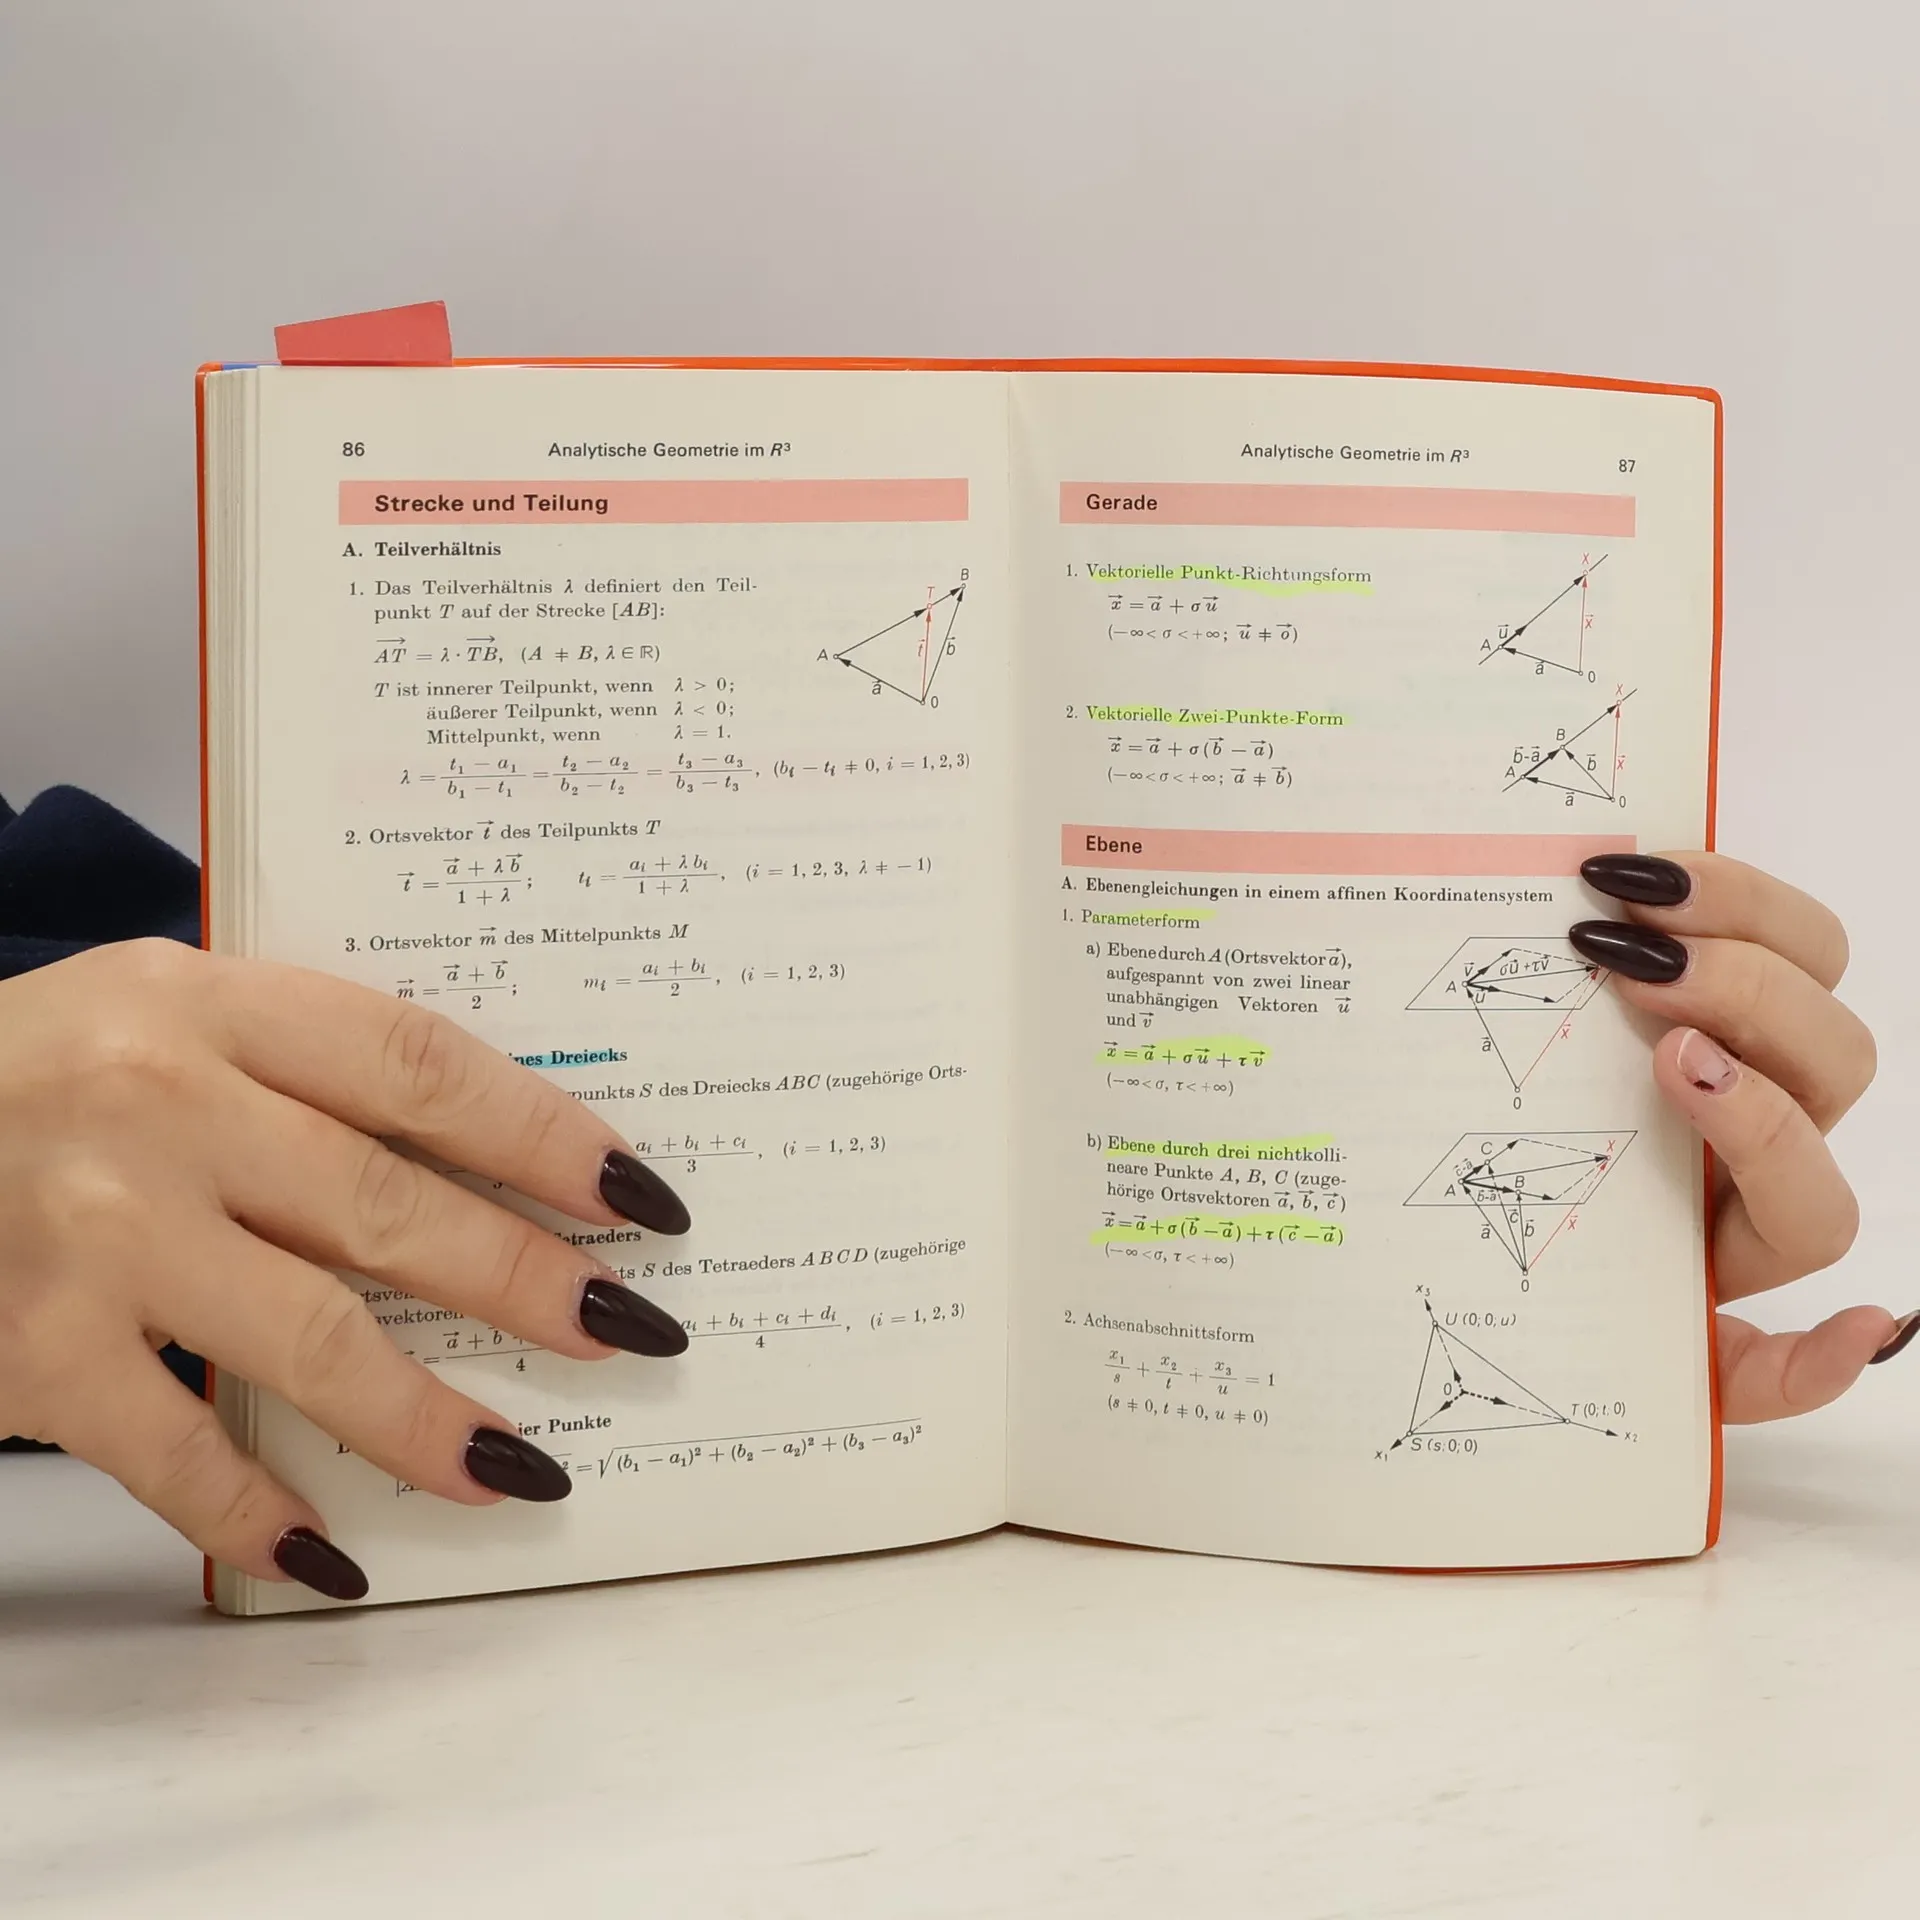 86 Analytische Geometrie im R³
Strecke und Teilung
A. Teilverhältnis
1. Das Teilverhältnis λ definiert den Teil-
punkt T auf der Strecke [AB]:
AT⃗ = λ · TB⃗, (A ≠ B, λ ∈ ℝ)
T ist innerer Teilpunkt, wenn λ > 0;
äußerer Teilpunkt, wenn λ < 0;
Mittelpunkt, wenn λ = 1.
λ = (t₁ − a₁)/(b₁ − t₁) = (t₂ − a₂)/(b₂ − t₂) = (t₃ − a₃)/(b₃ − t₃), (bᵢ − tᵢ ≠ 0, i = 1, 2, 3)
B
T
A
t⃗
b⃗
a⃗
0
2. Ortsvektor t⃗ des Teilpunkts T
t⃗ = (a⃗ + λb⃗)/(1 + λ); tᵢ = (aᵢ + λbᵢ)/(1 + λ), (i = 1, 2, 3, λ ≠ −1)
3. Ortsvektor m⃗ des Mittelpunkts M
m⃗ = (a⃗ + b⃗)/2; mᵢ = (aᵢ + bᵢ)/2, (i = 1, 2, 3)
Dreiecks
punkts S des Dreiecks ABC (zugehörige Orts-
(aᵢ + bᵢ + cᵢ)/3, (i = 1, 2, 3)
etraeders
S des Tetraeders ABCD (zugehörige
vektoren
= a⃗ + b⃗
4
aᵢ + bᵢ + cᵢ + dᵢ
4
, (i = 1, 2, 3)
ier Punkte
= √((b₁ − a₁)² + (b₂ − a₂)² + (b₃ − a₃)²)
Analytische Geometrie im R³ 87
Gerade
1. Vektorielle Punkt-Richtungsform
x⃗ = a⃗ + σu⃗
(−∞ < σ < +∞; u⃗ ≠ o⃗)
X
u⃗
A
x⃗
a⃗
0
2. Vektorielle Zwei-Punkte-Form
x⃗ = a⃗ + σ(b⃗ − a⃗)
(−∞ < σ < +∞; a⃗ ≠ b⃗)
X
B
b⃗-a⃗
A
b⃗
x⃗
a⃗
0
Ebene
A. Ebenengleichungen in einem affinen Koordinatensystem
1. Parameterform
a) Ebene durch A (Ortsvektor a⃗),
aufgespannt von zwei linear
unabhängigen Vektoren u⃗
und v⃗
x⃗ = a⃗ + σu⃗ + τv⃗
(−∞ < σ, τ < +∞)
v⃗
σu⃗+τv⃗
A
u⃗
a⃗
x⃗
0
b) Ebene durch drei nichtkolli-
neare Punkte A, B, C (zuge-
hörige Ortsvektoren a⃗, b⃗, c⃗)
x⃗ = a⃗ + σ(b⃗ − a⃗) + τ(c⃗ − a⃗)
(−∞ < σ, τ < +∞)
C
X
c⃗-a⃗
A
b⃗-a⃗
B
a⃗
c⃗
b⃗
x⃗
0
2. Achsenabschnittsform
x₁/s + x₂/t + x₃/u = 1
(s ≠ 0, t ≠ 0, u ≠ 0)
x₃
U (0; 0; u)
0
T (0; t; 0)
x₂
S (s; 0; 0)
x₁